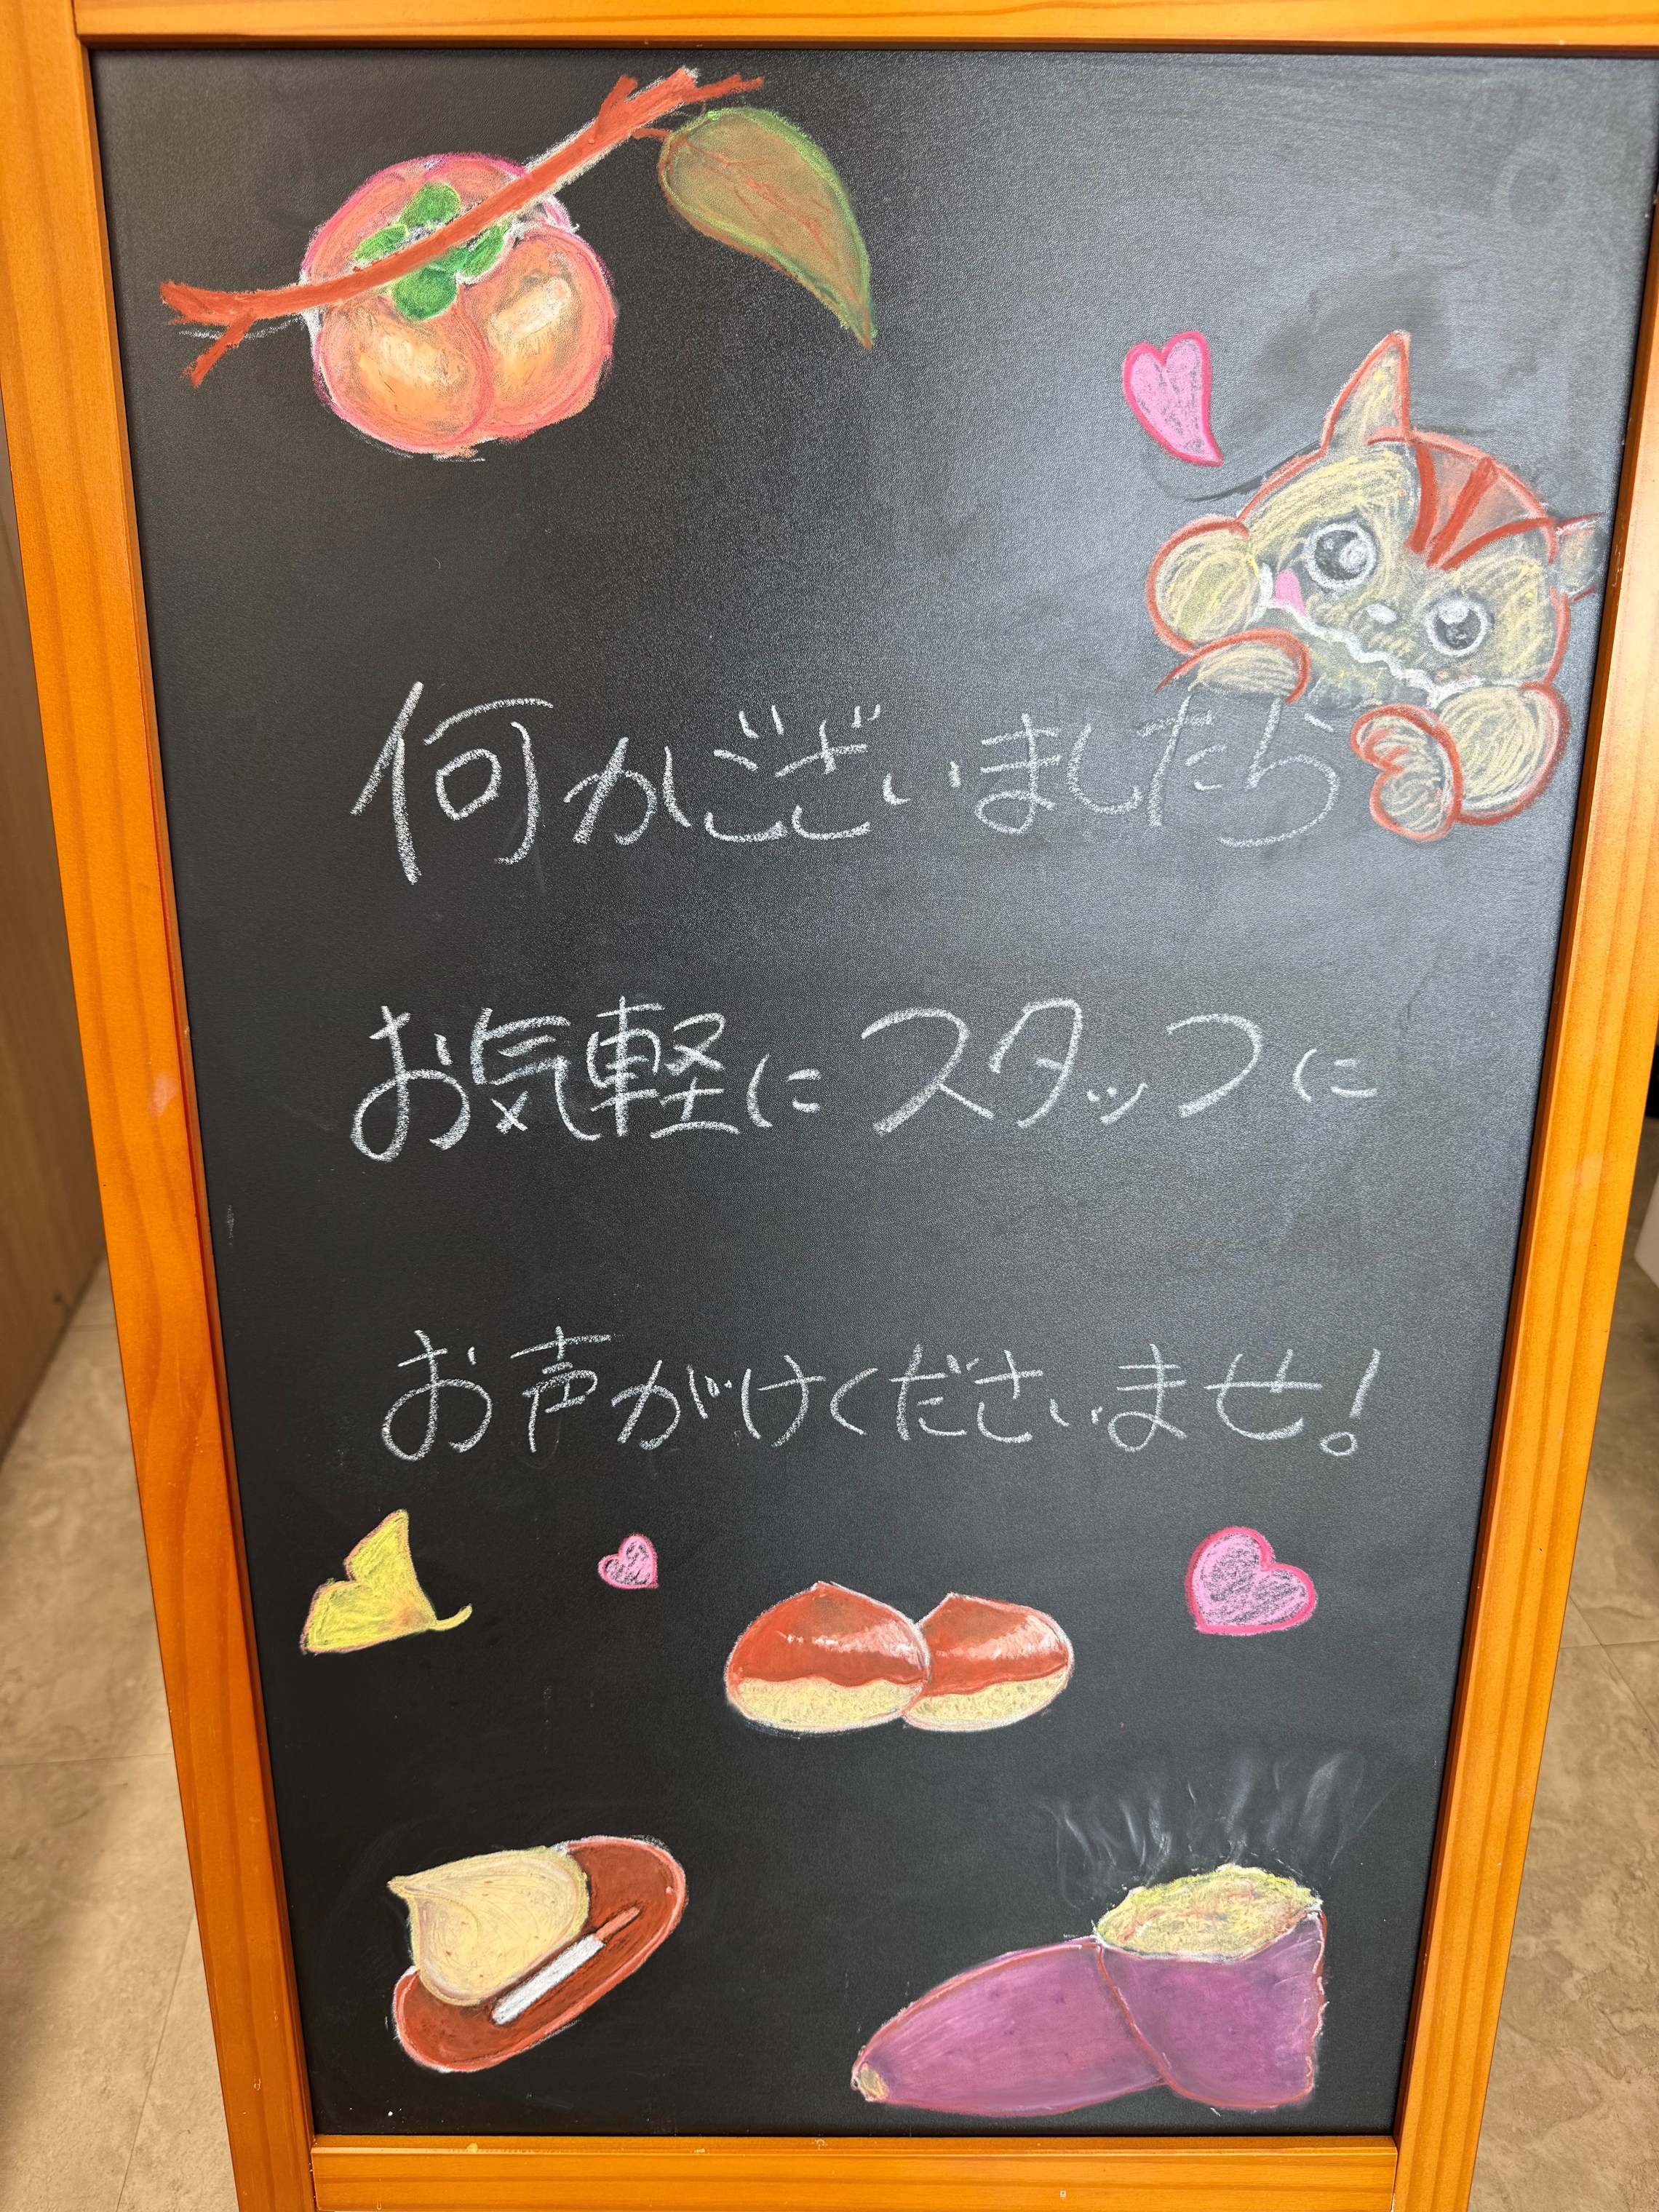 何かございましたら
お気軽にスタッフに
お声がけくださいませ!